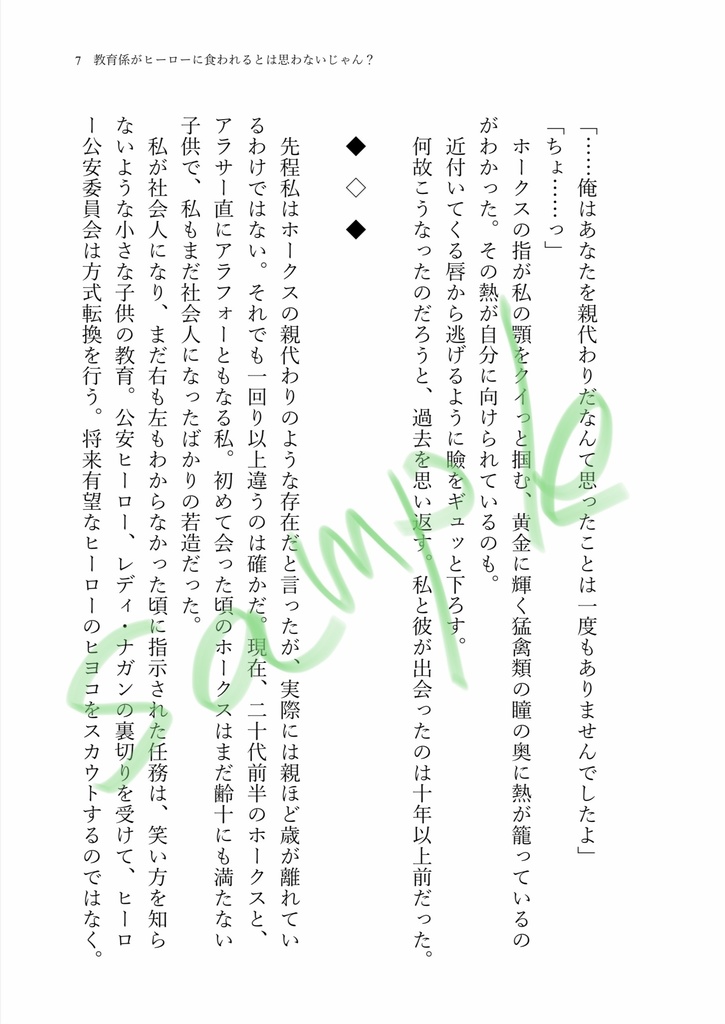 7 教育係がヒーローに食われるとは思わないじゃん？
「……俺はあなたを親代わりだなんて思ったことは一度もありませんでしたよ」
「ちょ……っ」
ホークスの指が私の顎をクイっと掴む、黄金に輝く猛禽類の瞳の奥に熱が籠っているの
がわかった。その熱が自分に向けられているのも。
近付いてくる唇から逃げるように瞼をギュッと下ろす。
何故こうなったのだろうと、過去を思い返す。私と彼が出会ったのは十年以上前だった。
◆◇◆
先程私はホークスの親代わりのような存在だと言ったが、実際には親ほど歳が離れてい
るわけではない。それでも一回り以上違うのは確かだ。現在、二十代前半のホークスと、
アラサー直にアラフォーともなる私。初めて会った頃のホークスはまだ齢十にも満たない
子供で、私もまだ社会人になったばかりの若造だった。
私が社会人になり、まだ右も左もわからなかった頃に指示された任務は、笑い方を知ら
ないような小さな子供の教育。公安ヒーロー、レディ・ナガンの裏切りを受けて、ヒーロ
ー公安委員会は方式転換を行う。将来有望なヒーローのヒヨコをスカウトするのではなく。
sample